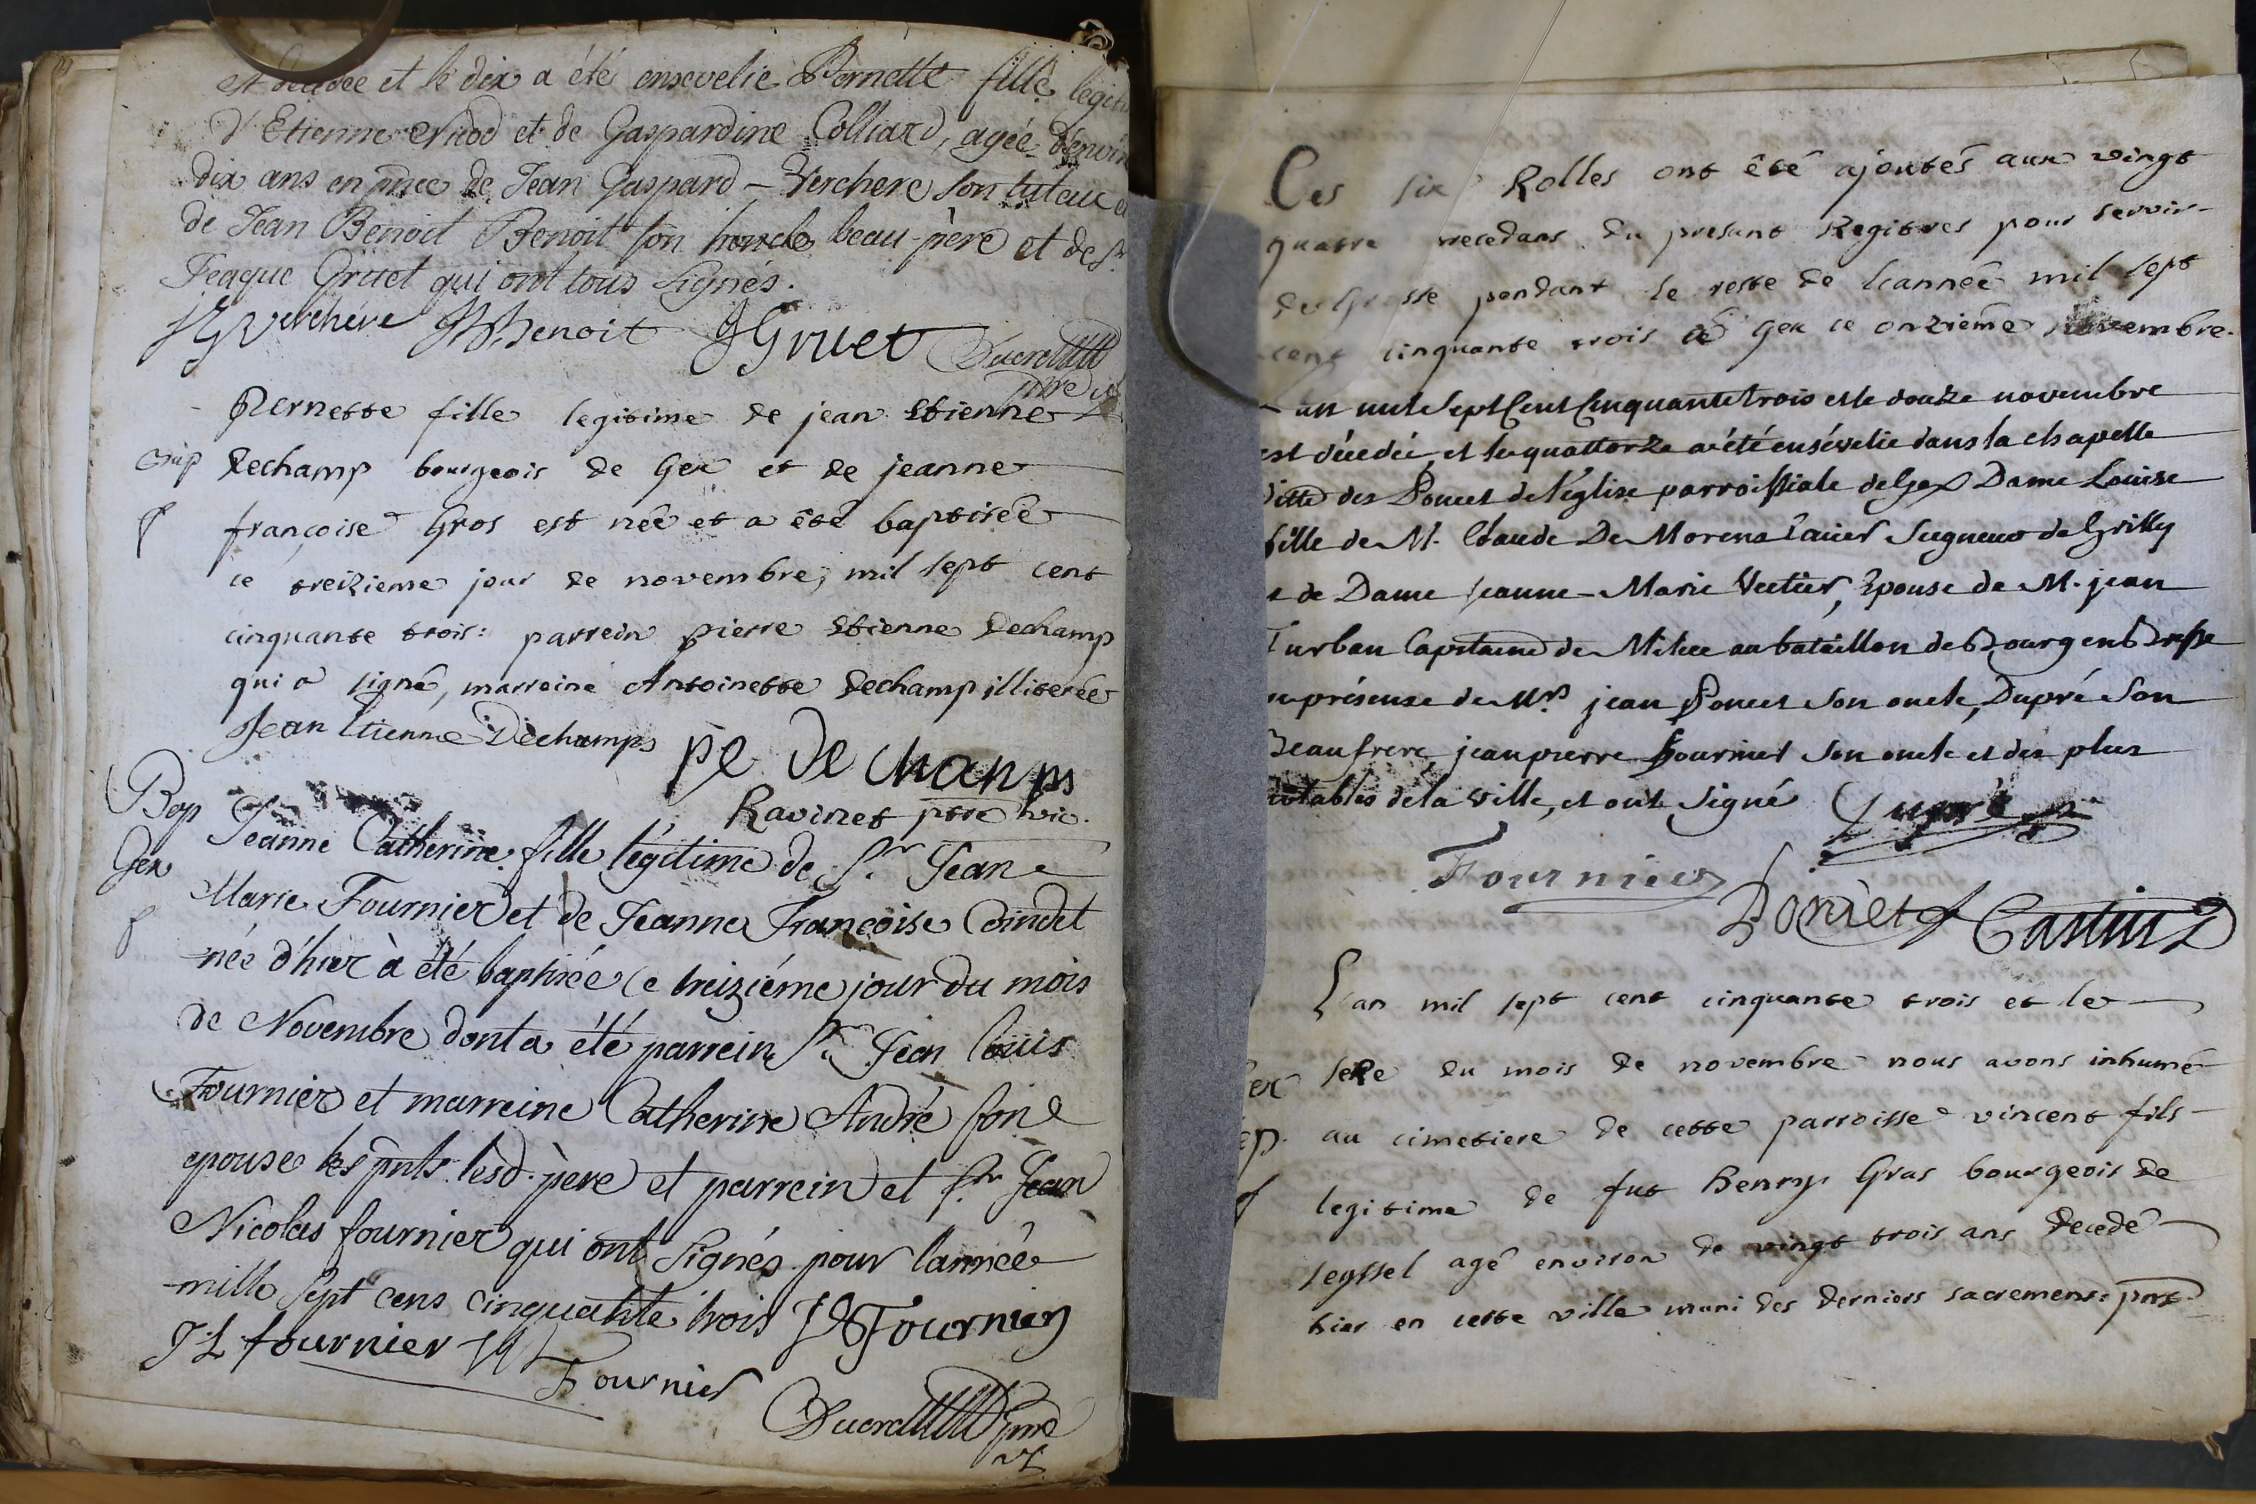 est decedée et le dix a été ensevelie Pernette fille legit
d'Etienne Nicod et de Gaspardine Colliard, agée d'envir
dix ans en pñce de Jean Gaspard - Verchere son tuteur et
de Jean Benoit Benoit son beau-père et de Sr
Jeaque Gruet qui ont tous signés.
JG Verchére JB Benoit JGruet Ducret
ptre
Pernette fille legitime de jean Etienne
dechamp bourgeois de Gex et de jeanne
françoise Gros est née et a été baptisée
ce treizieme jour de novembre, mil sept cent
cinquante trois: parrein pierre Etienne dechamp
qui a signé, marreine Antoinette dechamp illiterée
Jean Etienne Dechamps pe de champs
Ravinet ptre vic.
Bap Jeanne Catherine fille légitime de Sr. Jean
Gex Marie Fournier et de Jeanne Françoise Coindet
née d'hier à été baptisée ce treiziéme jour du mois
de Novembre dont a été parrein Sr. Jean Louis
Fournier et marreine Catherine André son
epouse les pnts lesd. père et parrein et sr. Jean
Nicolas fournier qui ont signés pour l'année
mille sept cens cinquante trois JN Fournier
J L fournier
Fournier
Ducret ptre
Ces six Rolles ont êté ajoutés aux vingt
quatre precedans du present Regitres pour servir
de Grosse pendant le reste de l'année mil sept
cent cinquante trois à Gex ce onzième novembre.
an mil sept Cent Cinquante trois et le douze novembre
est décedée, et le quattorze a été ensévelie dans la chapelle
ditte des Poncet de l'église parroissiale de Gex Dame Louise
fille de M. Claude De Morens Seigneur de Grilly
et de Dame jeanne-Marie, Epouse de M. jean
Turban Capitaine de Milice au bataillon de Bourg en bresse
en présense de Mrs jean Poncet son oncle, Dupré son
Beaufrere, jean pierre fournier son oncle et des plus
notables de la ville, et ont signé Dupré
Fournier
Poncet Castin
L'an mil sept cent cinquante trois et le
Gex seze du mois de novembre nous avons inhumé
sep. au cimetiere de cette parroisse vincent fils
legitime de fut henry Gras bourgeois de
seyssel agé environ de vingt trois ans decedé
hier en cette ville muni des derniers sacremens: pnt